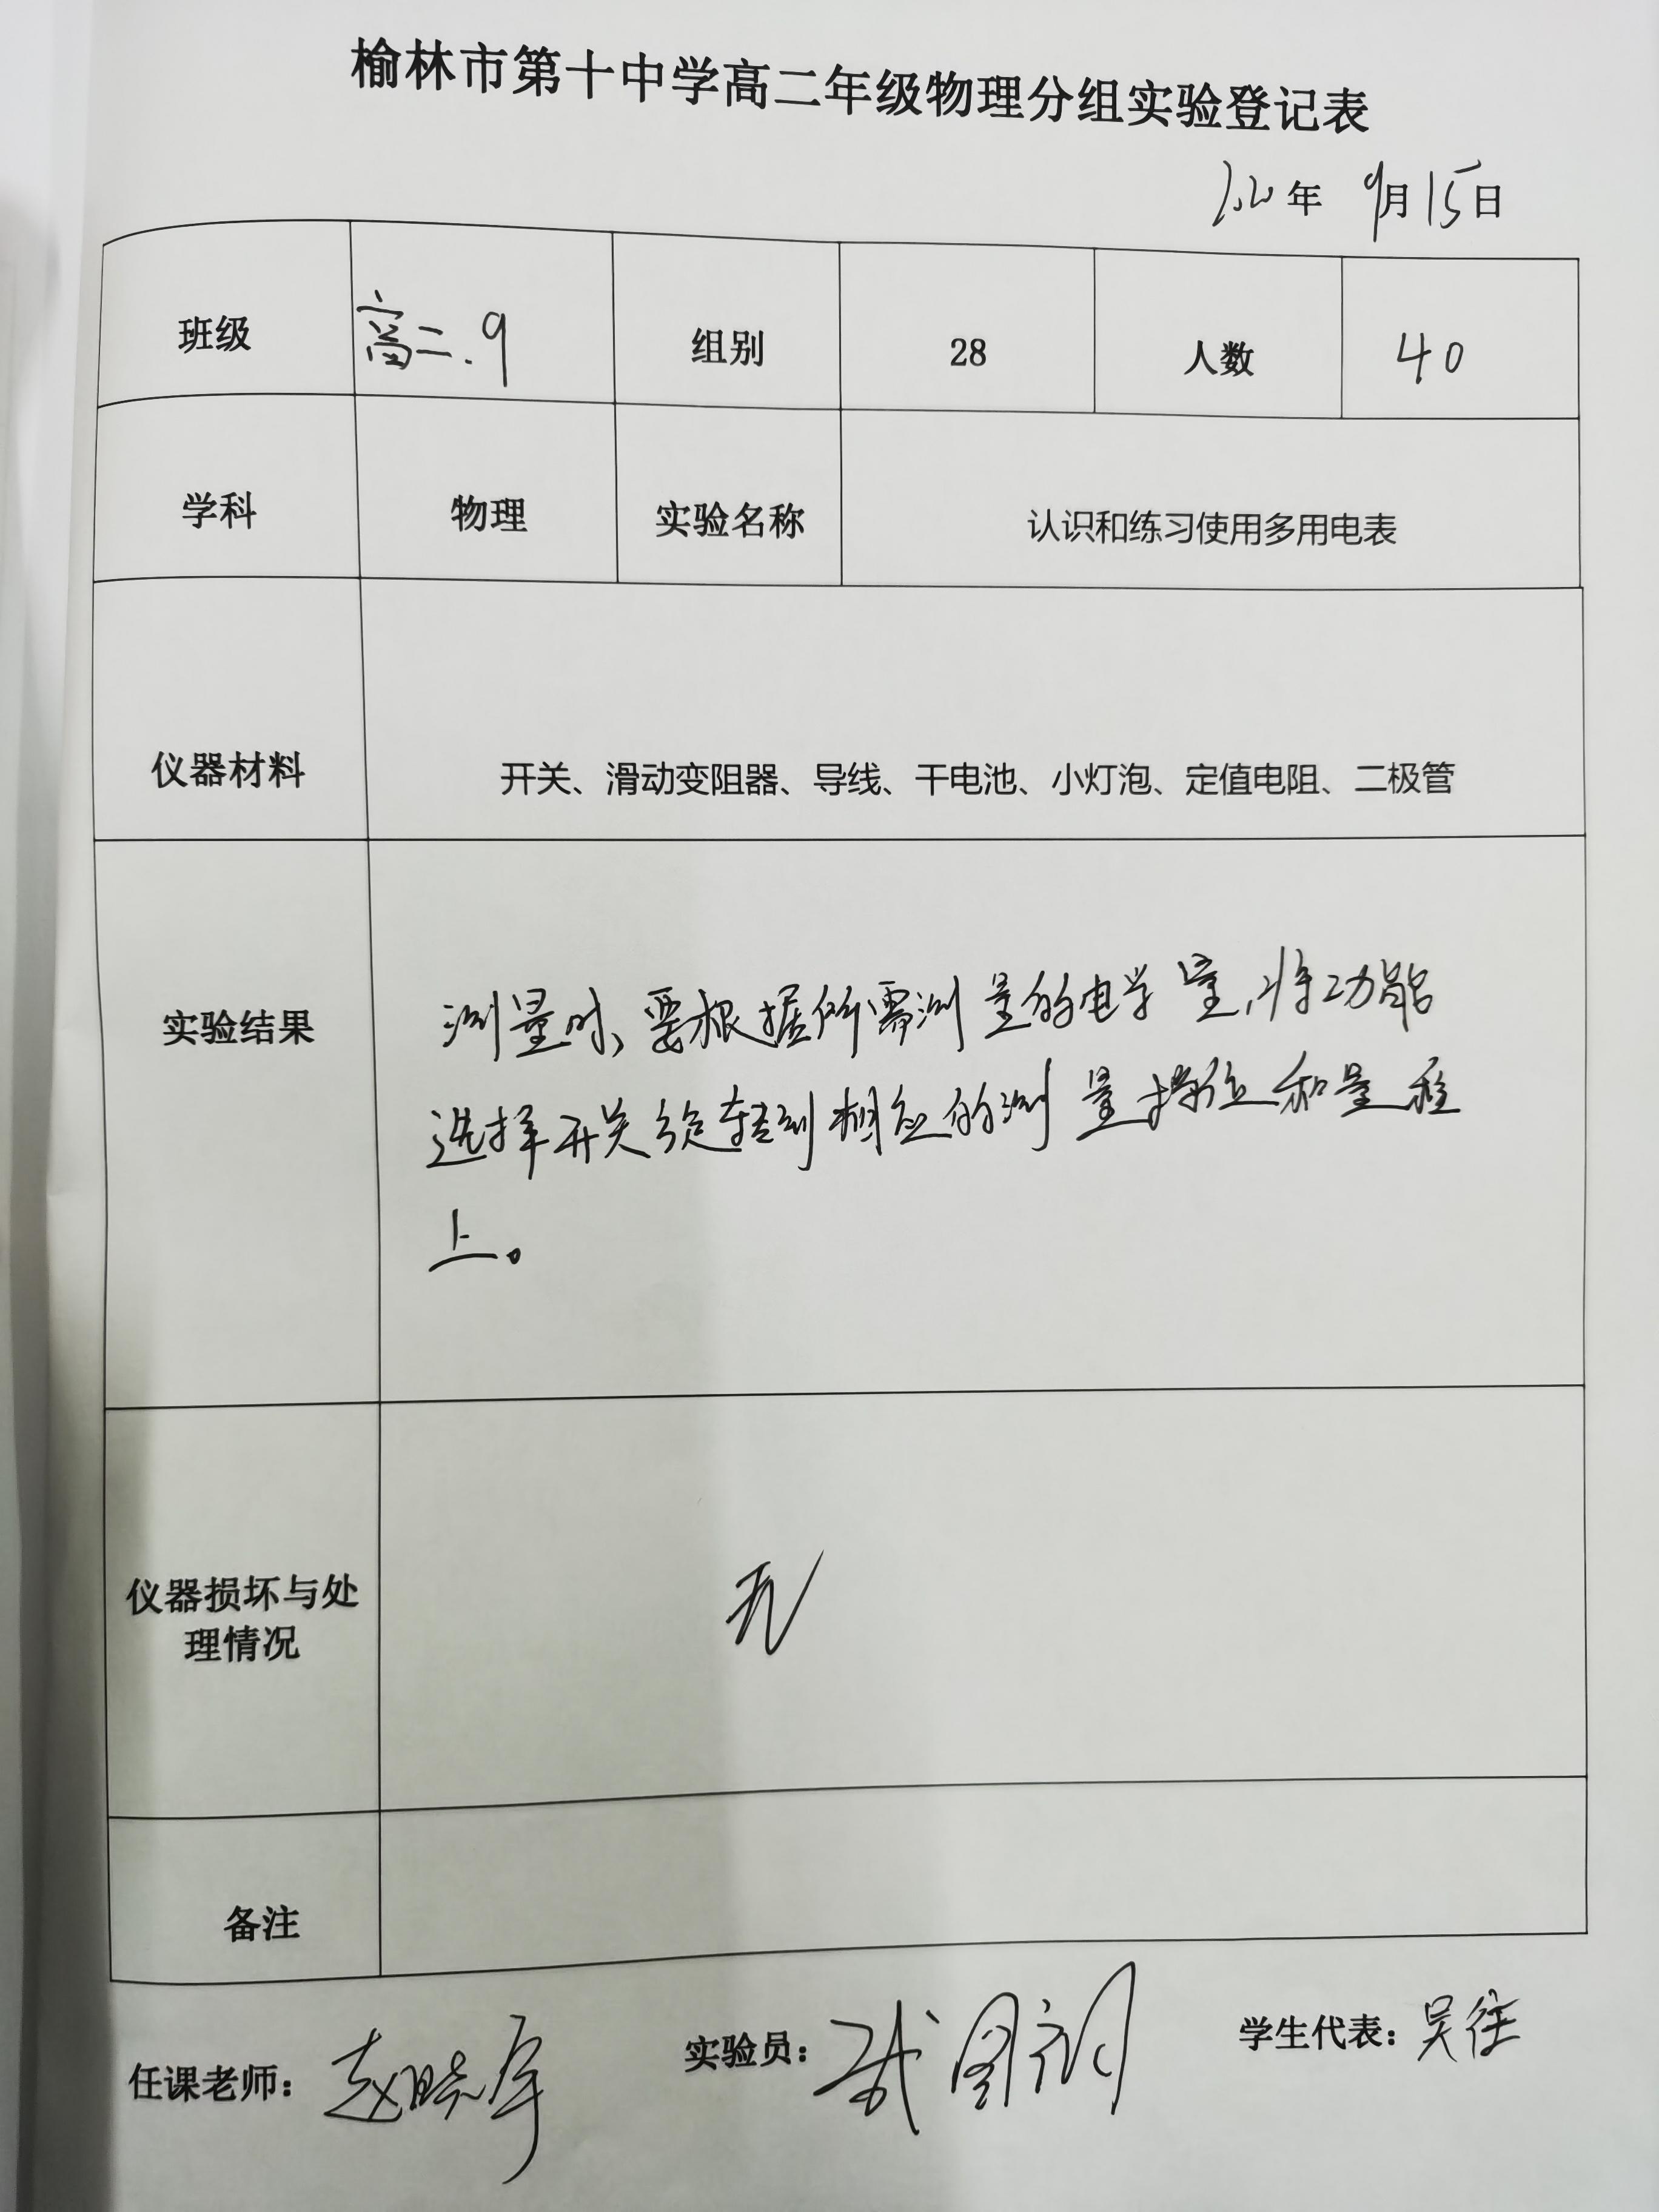 榆林市第十中学高二年级物理分组实验登记表
2020年 9月15日
班级 高二.9 组别 28 人数 40
学科 物理 实验名称 认识和练习使用多用电表
仪器材料 开关、滑动变阻器、导线、干电池、小灯泡、定值电阻、二极管
实验结果
测量时,要根据所需测量的电学量,将功能
选择开关旋转到相应的测量挡位和量程
上。
仪器损坏与处
理情况
无
备注
任课老师: 赵晓军 实验员: 学生代表: 吴佳